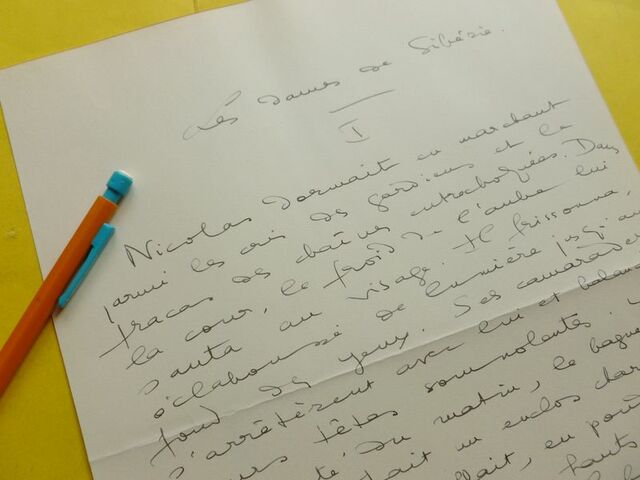 Les dames de Sibérie.
I
Nicolas dormait en marchant
parmi les cris des gardiens et le
fracas des chaînes entrechoquées. Dans
la cour, le froid de l'aube lui
sauta au visage. Il frissonna,
éclaboussé de lumière jusqu'au
fond des yeux. Ses camarades
s'arrêtèrent avec lui et
têtes somnolentes.
du matin, le
un enclos
en
hauts